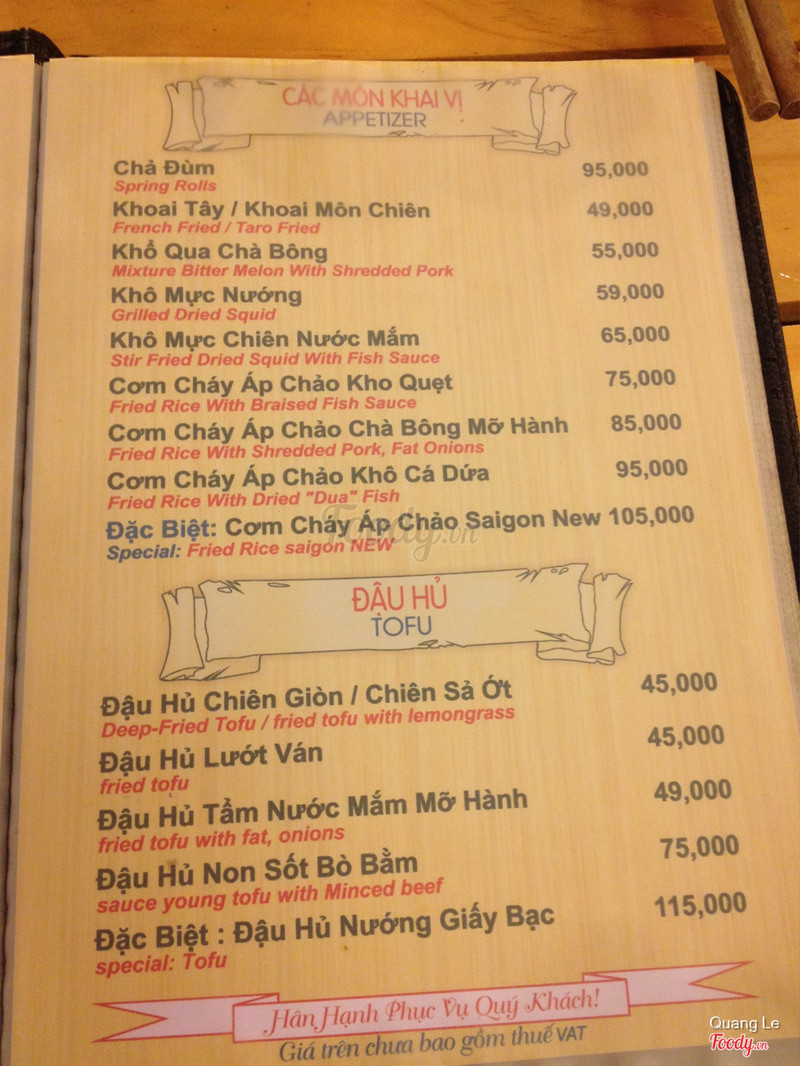 CÁC MÓN KHAI VỊ
APPETIZER
Chả Đùm 95,000
Spring Rolls
Khoai Tây / Khoai Môn Chiên 49,000
French Fried / Taro Fried
Khổ Qua Chà Bông 55,000
Mixture Bitter Melon With Shredded Pork
Khô Mực Nướng 59,000
Grilled Dried Squid
Khô Mực Chiên Nước Mắm 65,000
Stir Fried Dried Squid With Fish Sauce
Cơm Cháy Áp Chảo Kho Quẹt 75,000
Fried Rice With Braised Fish Sauce
Cơm Cháy Áp Chảo Chà Bông Mỡ Hành 85,000
Fried Rice With Shredded Pork, Fat Onions
Cơm Cháy Áp Chảo Khô Cá Dứa 95,000
Fried Rice With Dried "Dua" Fish
Đặc Biệt: Cơm Cháy Áp Chảo Saigon New 105,000
Special: Fried Rice saigon NEW
Foody.vn
ĐẬU HỦ
TOFU
Đậu Hủ Chiên Giòn / Chiên Sả Ớt 45,000
Deep-Fried Tofu / fried tofu with lemongrass
Đậu Hủ Lướt Ván 45,000
fried tofu
Đậu Hủ Tẩm Nước Mắm Mỡ Hành 49,000
fried tofu with fat, onions
Đậu Hủ Non Sốt Bò Bằm 75,000
sauce young tofu with Minced beef
Đặc Biệt : Đậu Hủ Nướng Giấy Bạc 115,000
special: Tofu
Hân Hạnh Phục Vụ Quý Khách!
Giá trên chưa bao gồm thuế VAT
Quang Le
Foody.vn